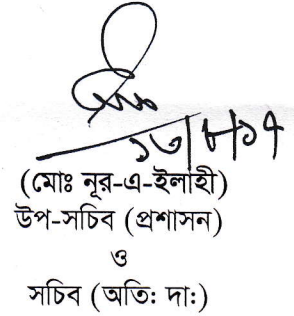 ১৩/৮/১৭
(মোঃ নূর-এ-ইলাহী)
উপ-সচিব (প্রশাসন)
ও
সচিব (অতিঃ দাঃ)